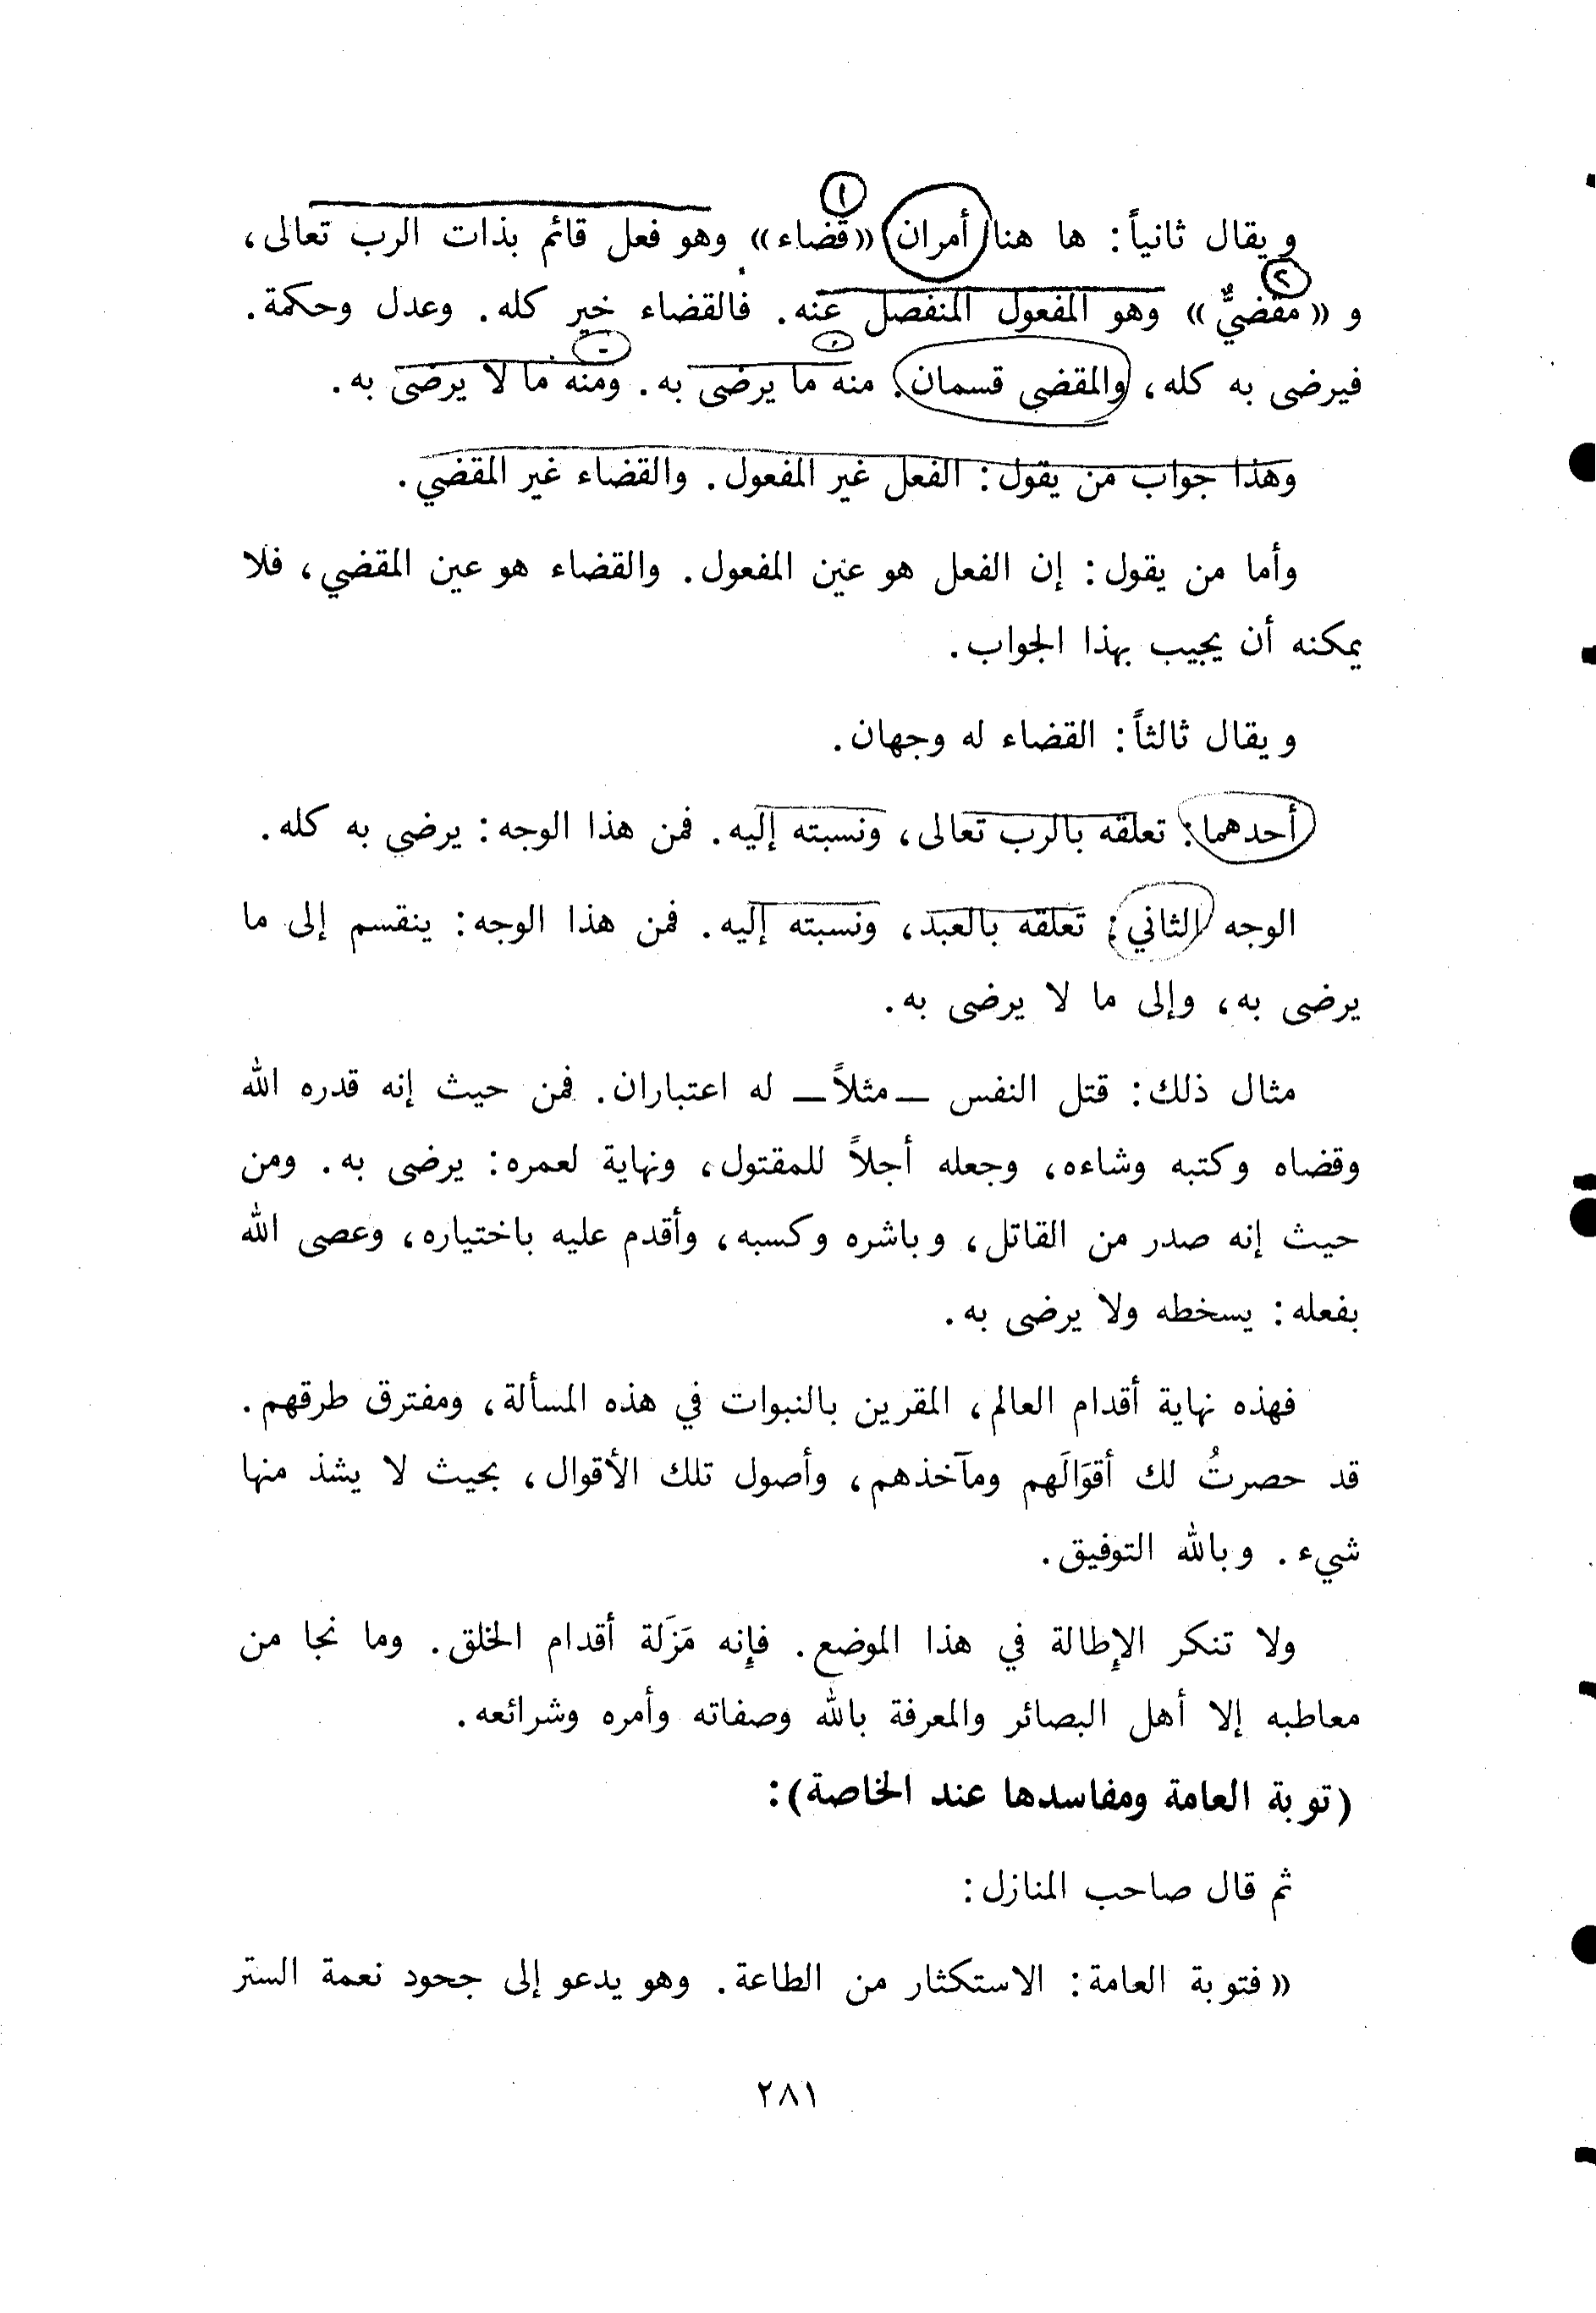 ويقال ثانياً: ها هنا أمران «قضاء» وهو فعل قائم بذات الرب تعالى،
و «مقضيٌّ» وهو المفعول المنفصل عنه. فالقضاء خير كله. وعدل وحكمة.
فيرضى به كله، والمقضي قسمان. منه ما يرضى به. ومنه ما لا يرضى به.
وهذا جواب من يقول: الفعل غير المفعول. والقضاء غير المقضي.
وأما من يقول: إن الفعل هو عين المفعول. والقضاء هو عين المقضي، فلا
يمكنه أن يجيب بهذا الجواب.
ويقال ثالثاً: القضاء له وجهان.
أحدهما: تعلقه بالرب تعالى، ونسبته إليه. فمن هذا الوجه: يرضي به كله.
الوجه الثاني: تعلقه بالعبد، ونسبته إليه. فمن هذا الوجه: ينقسم إلى ما
يرضى به، وإلى ما لا يرضى به.
مثال ذلك: قتل النفس — مثلاً — له اعتباران. فمن حيث إنه قدره الله
وقضاه وكتبه وشاءه، وجعله أجلاً للمقتول، ونهاية لعمره: يرضى به. ومن
حيث إنه صدر من القاتل، وباشره وكسبه، وأقدم عليه باختياره، وعصى الله
بفعله: يسخطه ولا يرضى به.
فهذه نهاية أقدام العالم، المقرين بالنبوات في هذه المسألة، ومفترق طرقهم.
قد حصرتُ لك أقوَالَهم ومآخذهم، وأصول تلك الأقوال، بحيث لا يشذ منها
شيء. وبالله التوفيق.
ولا تنكر الإطالة في هذا الموضع. فإنه مَزَلة أقدام الخلق. وما نجا من
معاطبه إلا أهل البصائر والمعرفة بالله وصفاته وأمره وشرائعه.
(توبة العامة ومفاسدها عند الخاصة):
ثم قال صاحب المنازل:
«فتوبة العامة: الاستكثار من الطاعة. وهو يدعو إلى جحود نعمة الستر
٢٨١